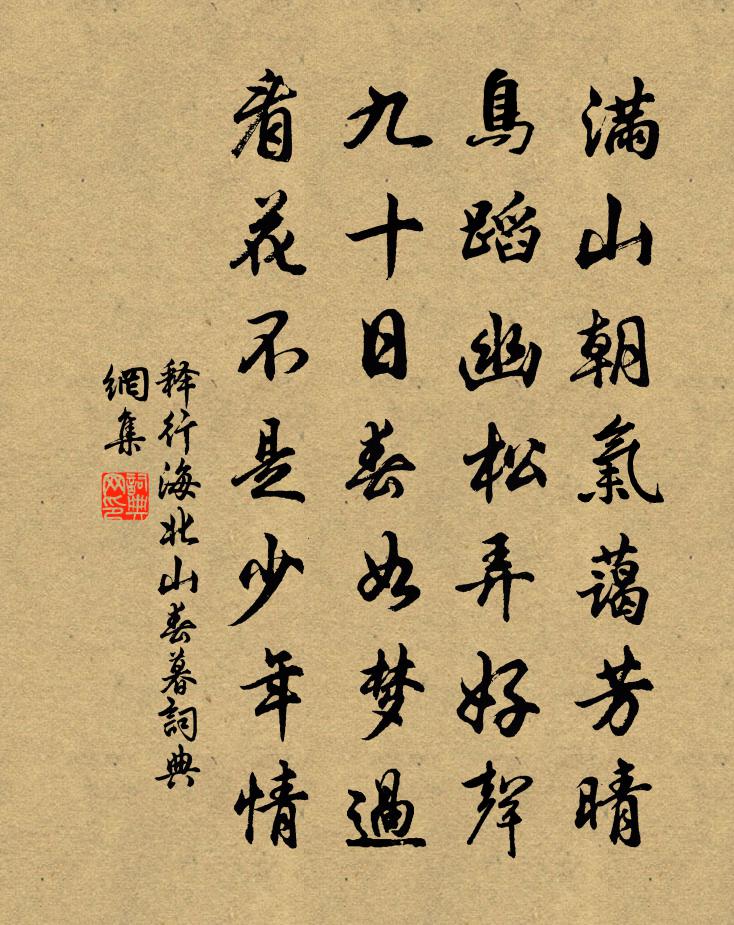 满山朝氣藹芳晴
鳥蹈幽松弄好聲
九十日春如梦過
看花不是少年情
释行海北山春暮詞典
網集
詞典
网印